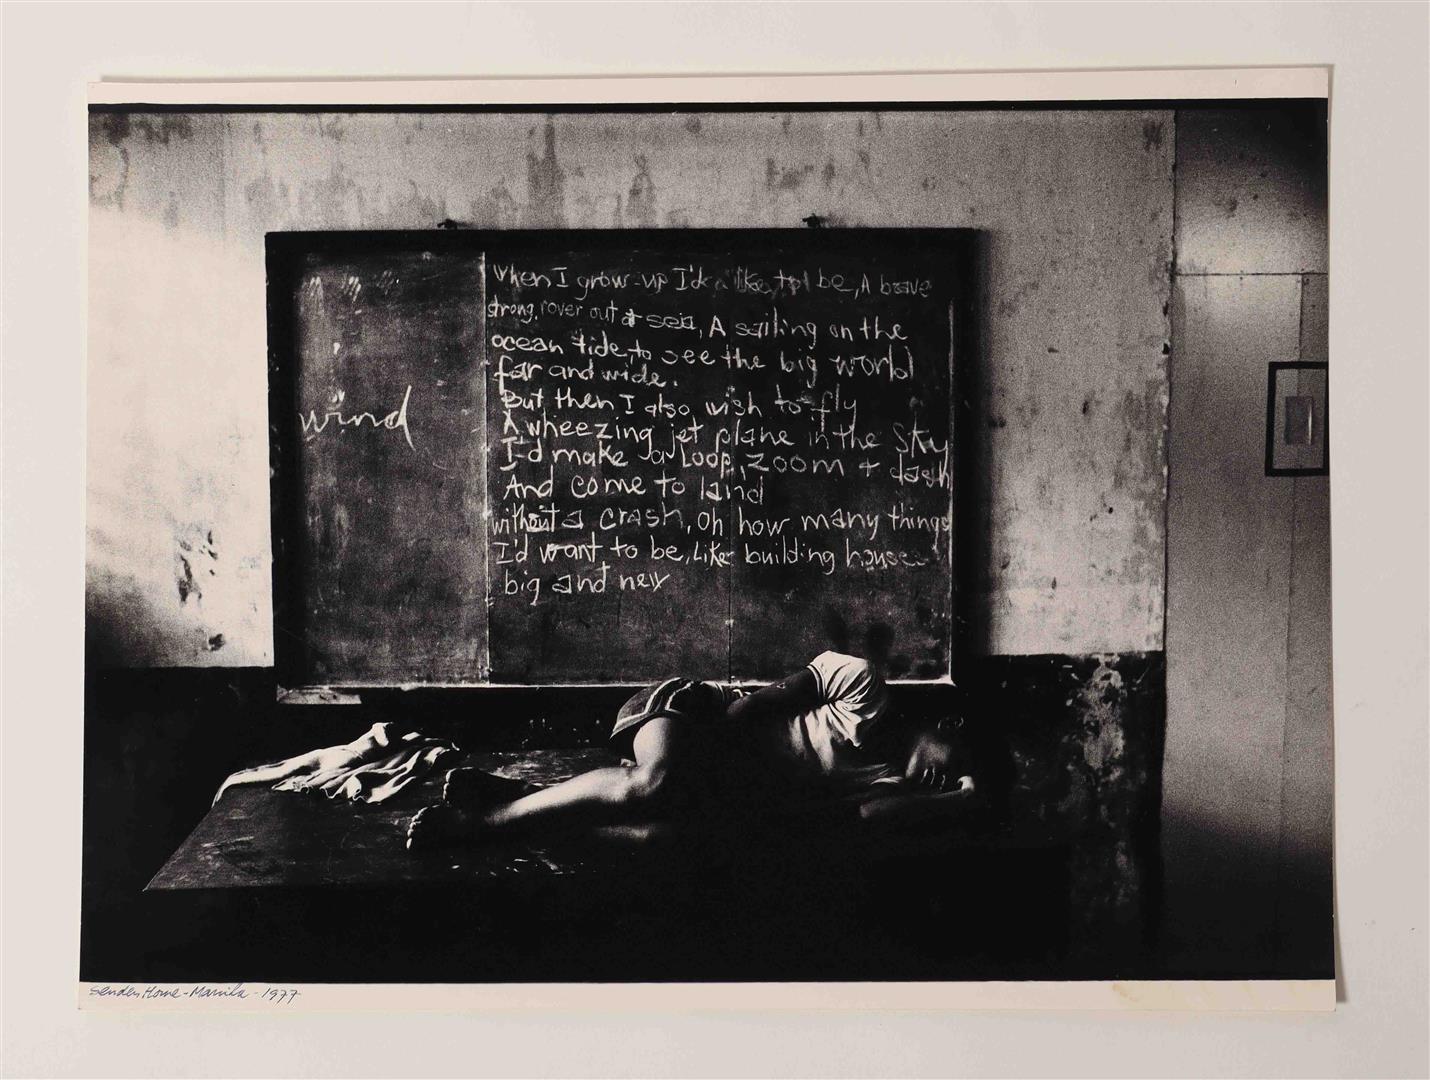 wind
When I grow-up I'd like to be, A brave
strong, rover out at sea, A sailing on the
ocean tide, to see the big world
far and wide.
But then I also wish to fly
A wheezing jet plane in the Sky
I'd make a Loop, zoom + dash
And come to land
without a crash, oh how many things
I'd want to be, Like building houses
big and new
Home - Manila - 1977